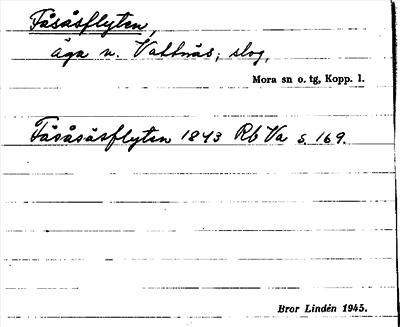 Fåsåsflyten,
äga n. Vattnäs; slog,
Mora sn o. tg, Kopp. l.
Fåsåsäsflyten 1843 Rb Va s. 169.
Bror Lindén 1945.